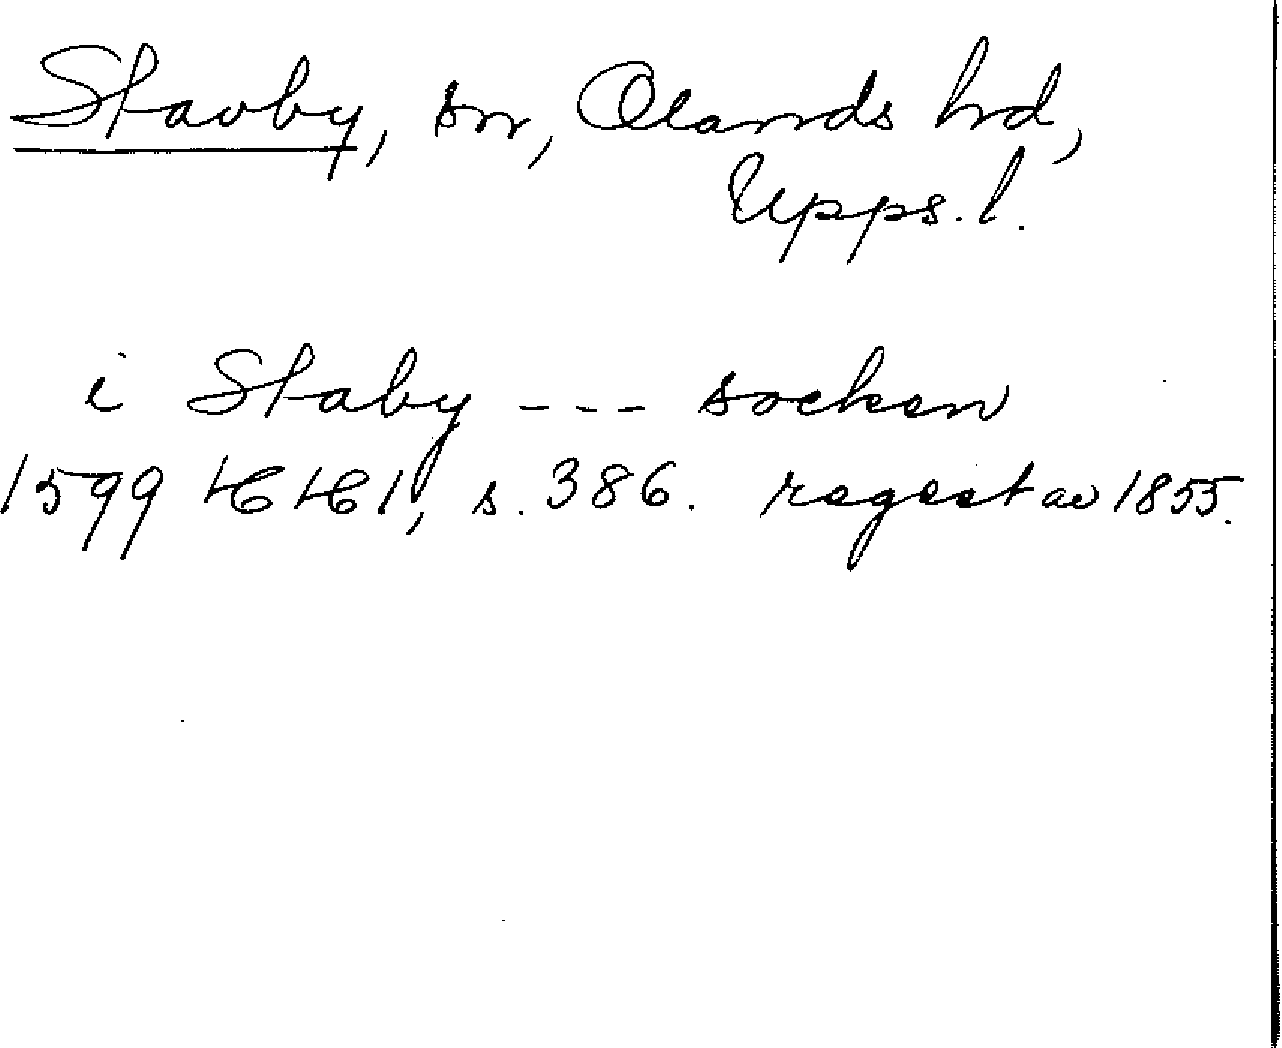 Stavby, sn, Olands hd,
Upps. l.
i Staby --- socken
1599 HH 1, s. 386. regest av 1855.